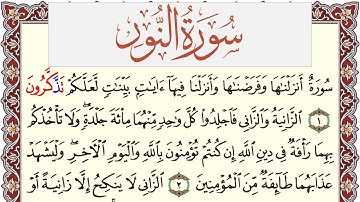 سُورَةُ النُّور
سُورَةٌ أَنزَلْنَٰهَا وَفَرَضْنَٰهَا وَأَنزَلْنَا فِيهَآ ءَايَٰتٍۭ بَيِّنَٰتٍ لَّعَلَّكُمْ تَذَكَّرُونَ
١ ٱلزَّانِيَةُ وَٱلزَّانِى فَٱجْلِدُوا۟ كُلَّ وَٰحِدٍ مِّنْهُمَا مِا۟ئَةَ جَلْدَةٍ ۖ وَلَا تَأْخُذْكُم
بِهِمَا رَأْفَةٌ فِى دِينِ ٱللَّهِ إِن كُنتُمْ تُؤْمِنُونَ بِٱللَّهِ وَٱلْيَوْمِ ٱلْءَاخِرِ ۖ وَلْيَشْهَدْ
عَذَابَهُمَا طَآئِفَةٌ مِّنَ ٱلْمُؤْمِنِينَ ٢ ٱلزَّانِى لَا يَنكِحُ إِلَّا زَانِيَةً أَوْ